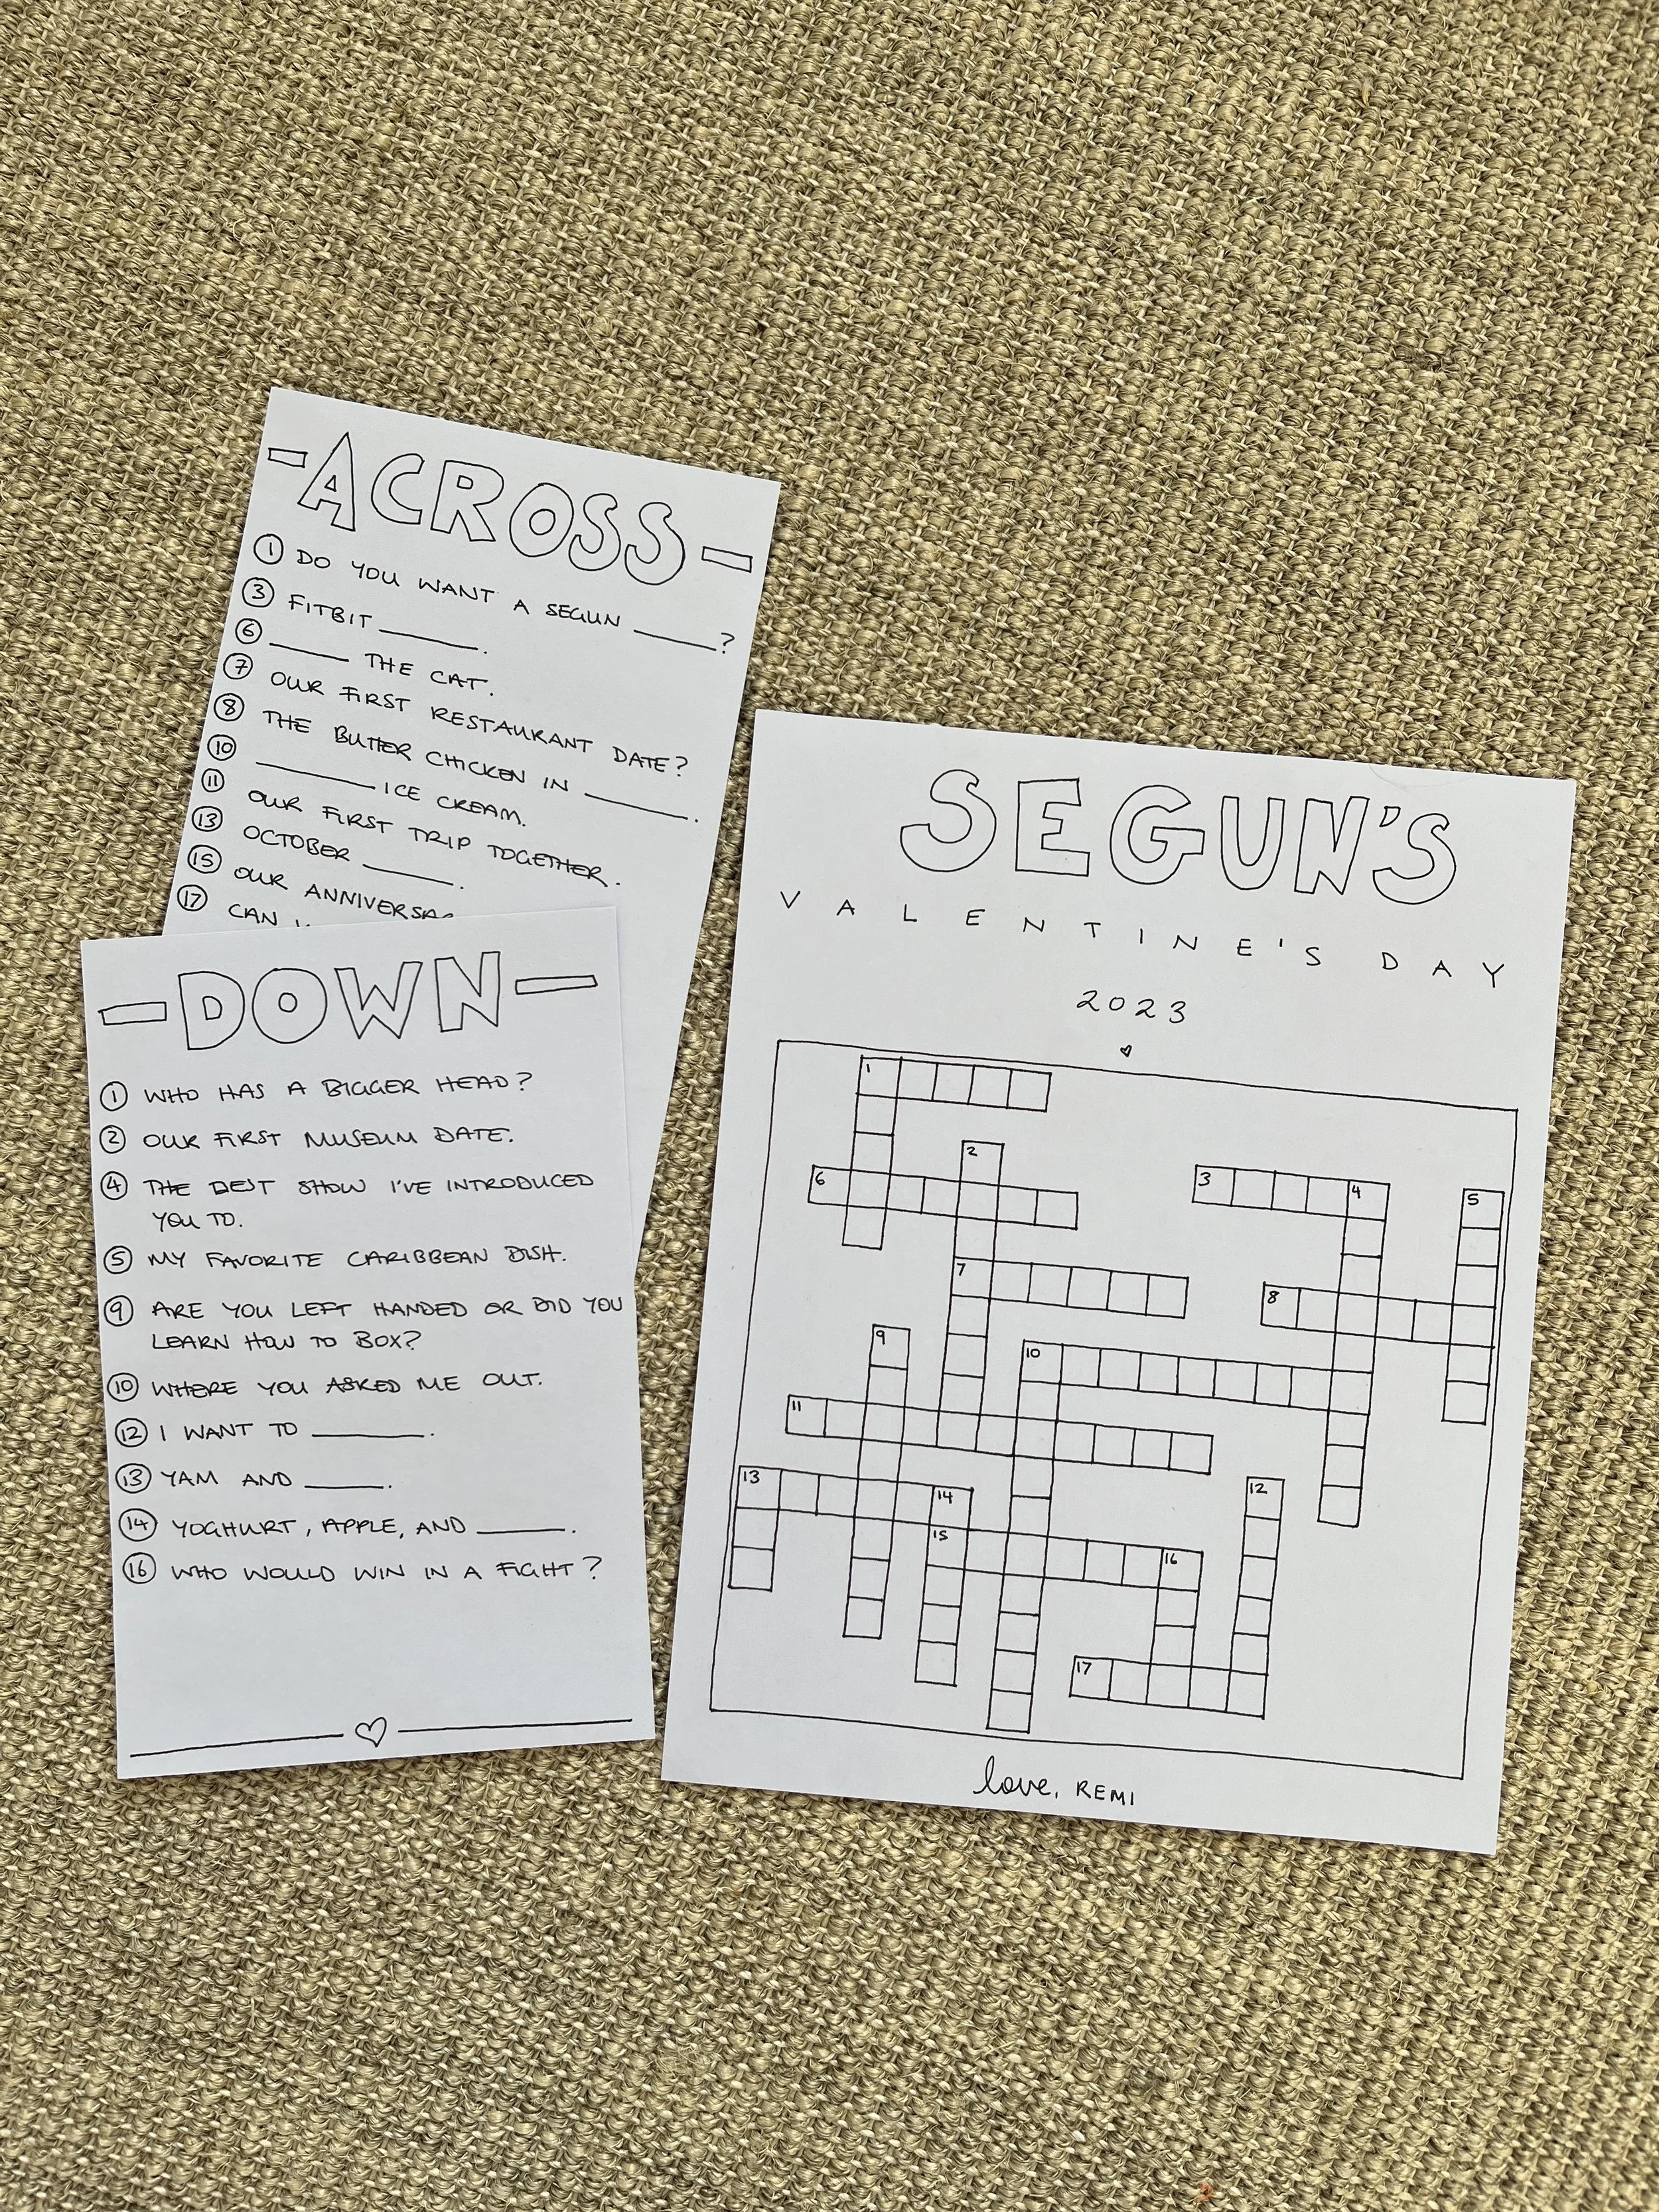 -ACROSS-
① DO YOU WANT A SEGUN ______?
③ FITBIT ______.
⑥ ______ THE CAT.
⑦ OUR FIRST RESTAURANT DATE?
⑧ THE BUTTER CHICKEN IN ______.
⑩ ______ ICE CREAM.
⑪ OUR FIRST TRIP TOGETHER.
⑬ OCTOBER ______.
⑮ OUR
⑰ CAN
-DOWN-
① WHO HAS A BIGGER HEAD?
② OUR FIRST MUSEUM DATE.
④ THE BEST SHOW I'VE INTRODUCED
YOU TO.
⑤ MY FAVORITE CARIBBEAN DISH.
⑨ ARE YOU LEFT HANDED OR DID YOU
LEARN HOW TO BOX?
⑩ WHERE YOU ASKED ME OUT.
⑫ I WANT TO ______.
⑬ YAM AND ______.
⑭ YOGHURT, APPLE, AND ______.
⑯ WHO WOULD WIN IN A FIGHT?
SEGUN'S
VALENTINE'S DAY
2023
1
2
3
4
5
6
7
8
9
10
11
12
13
14
15
16
17
love, REMI